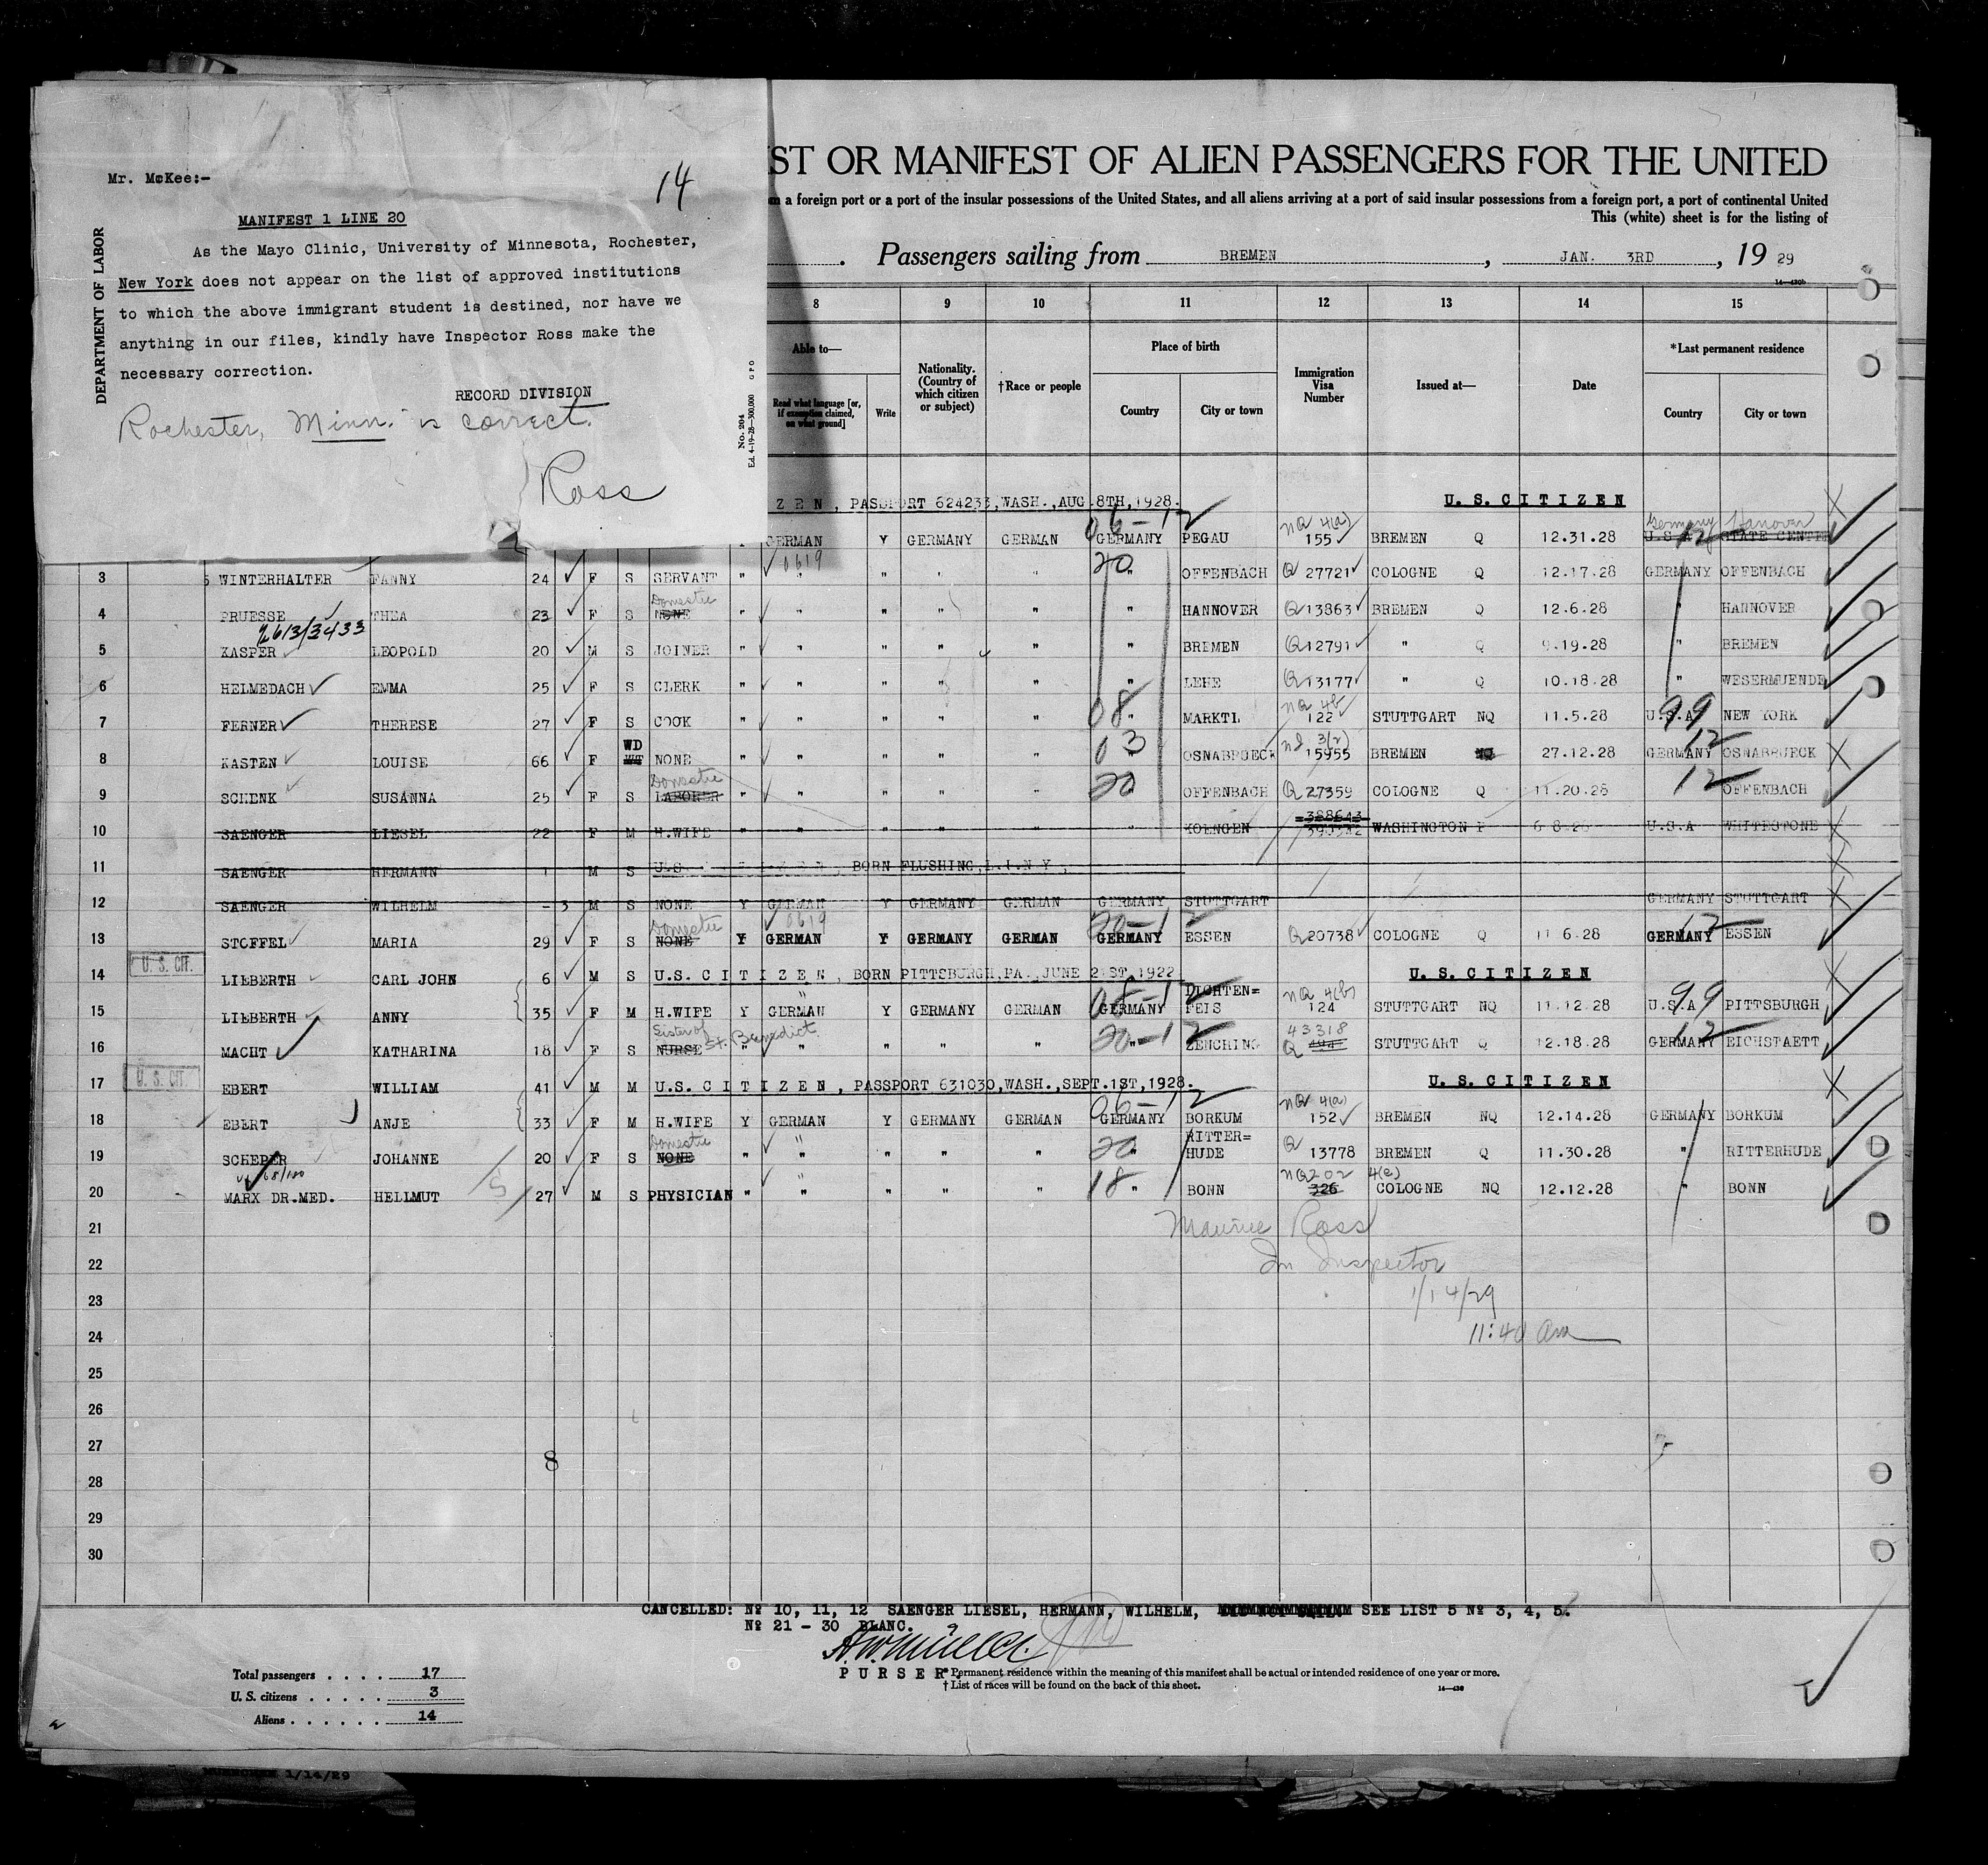 Mr. McKee:-
14
MANIFEST 1 LINE 20
DEPARTMENT OF LABOR
As the Mayo Clinic, University of Minnesota, Rochester,
New York does not appear on the list of approved institutions
to which the above immigrant student is destined, nor have we
anything in our files, kindly have Inspector Ross make the
necessary correction.
RECORD DIVISION
Rochester, Minn. is correct.
Ross
No. 204
Ed. 4-19-28-300,000 GPO
ST OR MANIFEST OF ALIEN PASSENGERS FOR THE UNITED
a foreign port or a port of the insular possessions of the United States, and all aliens arriving at a port of said insular possessions from a foreign port, a port of continental United
This (white) sheet is for the listing of
Passengers sailing from BREMEN, JAN. 3RD, 1929
14-430b
8 9 10 11 12 13 14 15
Able to—
Read what language [or, if exemption claimed, on what ground]
Write
Nationality. (Country of which citizen or subject)
†Race or people
Place of birth
Country
City or town
Immigration Visa Number
Issued at—
Date
*Last permanent residence
Country
City or town
ZEN, PASSPORT 624233, WASH., AUG. 8TH, 1928. U.S. CITIZEN
GERMAN Y GERMANY GERMAN 06-12 GERMANY PEGAU NQ 4(a) 155 BREMEN Q 12.31.28 Germany Hanover U.S.A. 12
3 WINTERHALTER FANNY 24 F S SERVANT " 0619 " " " " 20 " OFFENBACH Q 27721 COLOGNE Q 12.17.28 GERMANY OFFENBACH
4 PRUESSE THEA 23 F S Domestic NONE " " " " " " HANNOVER Q 13863 BREMEN Q 12.6.28 " HANNOVER
2613/3433
5 KASPER LEOPOLD 20 M S JOINER " " " " " " BREMEN Q 12791 " Q 9.19.28 " BREMEN
6 HELMEDACH EMMA 25 F S CLERK " " " " " " LEHE Q 13177 " Q 10.18.28 " WESERMUENDE
7 FERNER THERESE 27 F S COOK " " " " " 08 " MARKTL NQ 4b 122 STUTTGART NQ 11.5.28 U.S.A 99 NEW YORK
8 KASTEN LOUISE 66 F WD NONE " " " " " 03 " OSNABRUECK 3(2) 15955 BREMEN 27.12.28 GERMANY 12 OSNABRUECK
9 SCHENK SUSANNA 25 F S Domestic LABORER " " " " " 20 OFFENBACH Q 27359 COLOGNE Q 11.20.28 12 OFFENBACH
10 SAENGER LIESEL 22 F M H.WIFE " " " " " " KOENGEN 388643 WASHINGTON P U.S.A WHITESTONE
11 SAENGER HERMANN 1 M S U.S. BORN FLUSHING, L.I. N Y,
12 SAENGER WILHELM - 3 M S NONE Y GERMAN Y GERMANY GERMAN GERMANY STUTTGART GERMANY STUTTGART
13 STOFFEL MARIA 29 F S Domestic NONE Y 0619 GERMAN Y GERMANY GERMAN 20-12 GERMANY ESSEN Q 20738 COLOGNE Q 11 6.28 GERMANY 12 ESSEN
U. S. CIT.
14 LILBERTH CARL JOHN 6 M S U.S. CITIZEN, BORN PITTSBURGH, PA., JUNE 21ST, 1922 U.S. CITIZEN
15 LILBERTH ANNY 35 F M H.WIFE Y GERMAN Y GERMANY GERMAN 08-12 GERMANY DICHTEN=FELS NQ 4(b) 124 STUTTGART NQ 11.12.28 U.S.A 99 PITTSBURGH
16 MACHT KATHARINA 18 F S Sister of St. Benedict NURSE " " " " " 20-12 ZENCHING 43318 Q STUTTGART Q 12.18.28 GERMANY 12 EICHSTAETT
U. S. CIT.
17 EBERT WILLIAM 41 M M U.S. CITIZEN, PASSPORT 631030, WASH., SEPT. 1ST, 1928. U.S. CITIZEN
18 EBERT ANJE 33 F M H.WIFE Y GERMAN Y GERMANY GERMAN 06-12 GERMANY BORKUM NQ 4(a) 152 BREMEN NQ 12.14.28 GERMANY BORKUM
19 SCHEPER JOHANNE 20 F S Domestic NONE " " " " " 20 " RITTER=HUDE Q 13778 BREMEN Q 11.30.28 " RITTERHUDE
20 MARX DR.MED. HELLMUT 27 M S PHYSICIAN " " " " " 18 " BONN NQ 202 4(e) 326 COLOGNE NQ 12.12.28 " BONN
21
Maurice Ross
22
Im Inspector
23
1/14/29
24
11:40 am
25
26
27
8
28
29
30
CANCELLED: № 10, 11, 12 SAENGER LIESEL, HERMANN, WILHELM, SEE LIST 5 № 3, 4, 5.
№ 21 - 30 BLANC.
PURSER.
*Permanent residence within the meaning of this manifest shall be actual or intended residence of one year or more.
† List of races will be found on the back of this sheet.
14-430
Total passengers . . . . 17
U. S. citizens . . . . . 3
Aliens . . . . . . 14
1/14/29